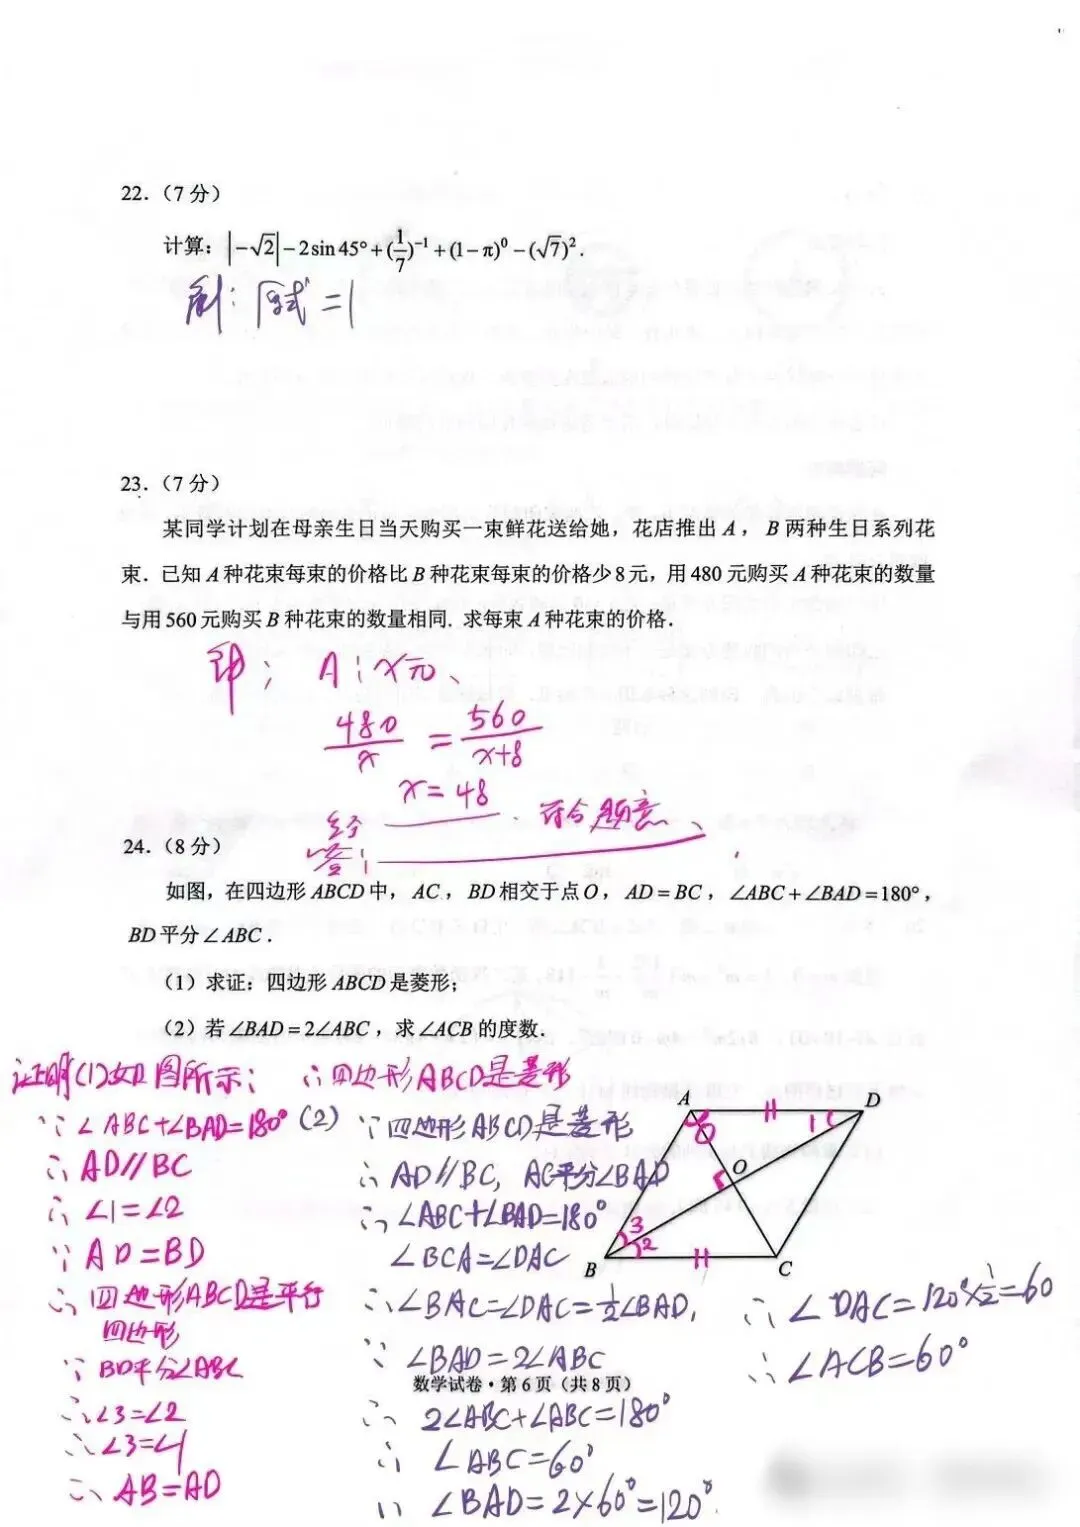 22.（7 分）
计算：|−√2|−2sin45°+(1/7)⁻¹+(1−π)⁰−(√7)².
解：原式=1
23.（7 分）
某同学计划在母亲生日当天购买一束鲜花送给她，花店推出 A，B 两种生日系列花
束．已知 A 种花束每束的价格比 B 种花束每束的价格少 8 元，用 480 元购买 A 种花束的数量
与用 560 元购买 B 种花束的数量相同．求每束 A 种花束的价格．
解： A：x元、
480/x = 560/(x+8)
x=48
经 符合题意、
答：
24.（8 分）
如图，在四边形 ABCD 中，AC，BD 相交于点 O，AD=BC，∠ABC+∠BAD=180°，
BD 平分∠ABC．
（1）求证：四边形 ABCD 是菱形；
（2）若∠BAD=2∠ABC，求∠ACB 的度数．
证明(1)如图所示：
∵∠ABC+∠BAD=180°
∴AD∥BC
∴∠1=∠2
∵AD=BD
∴四边形ABCD是平行
四边形
∵BD平分∠ABC
∴∠3=∠2
∴∠3=∠1
∴AB=AD
∴四边形ABCD是菱形
(2)∵四边形ABCD是菱形
∴AD∥BC，AC平分∠BAD
∴∠ABC+∠BAD=180°
∠BCA=∠DAC
∴∠BAC=∠DAC=1/2∠BAD，
∵∠BAD=2∠ABC
∴2∠ABC+∠ABC=180°
∴∠ABC=60°
∴∠BAD=2×60°=120°
∴∠DAC=120°×1/2=60
∴∠ACB=60°
A
D
1
O
3
2
B
C
数学试卷·第 6 页（共 8 页）